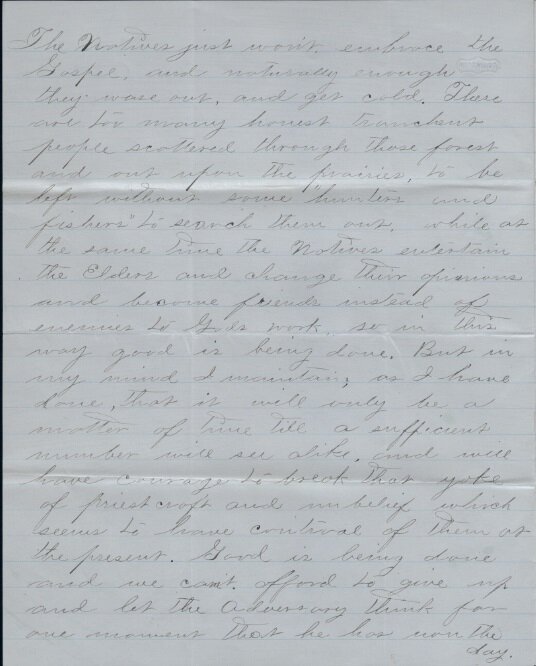 The Natives just won't embrace the
Gospel, and naturally enough
they wase out, and get cold. There
are too many honest tranchent
people scattered through those forest
and out upon the prairies, to be
left without some "hunters and
fishers" to search them out, while at
the same time the Natives entertain
the Elders and change their opinions
and become friends instead of
enemies to Gods work, so in this
way good is being done. But in
my mind I maintain, as I have
done, that it will only be a
matter of time till a sufficient
number will see alike, and will
have courage to break that yoke
of priestcraft and unbelief which
seems to have controal of them at
the present. Good is being done
and we can't afford to give up
and let the Adversary think for
one moment that he has won the
day.